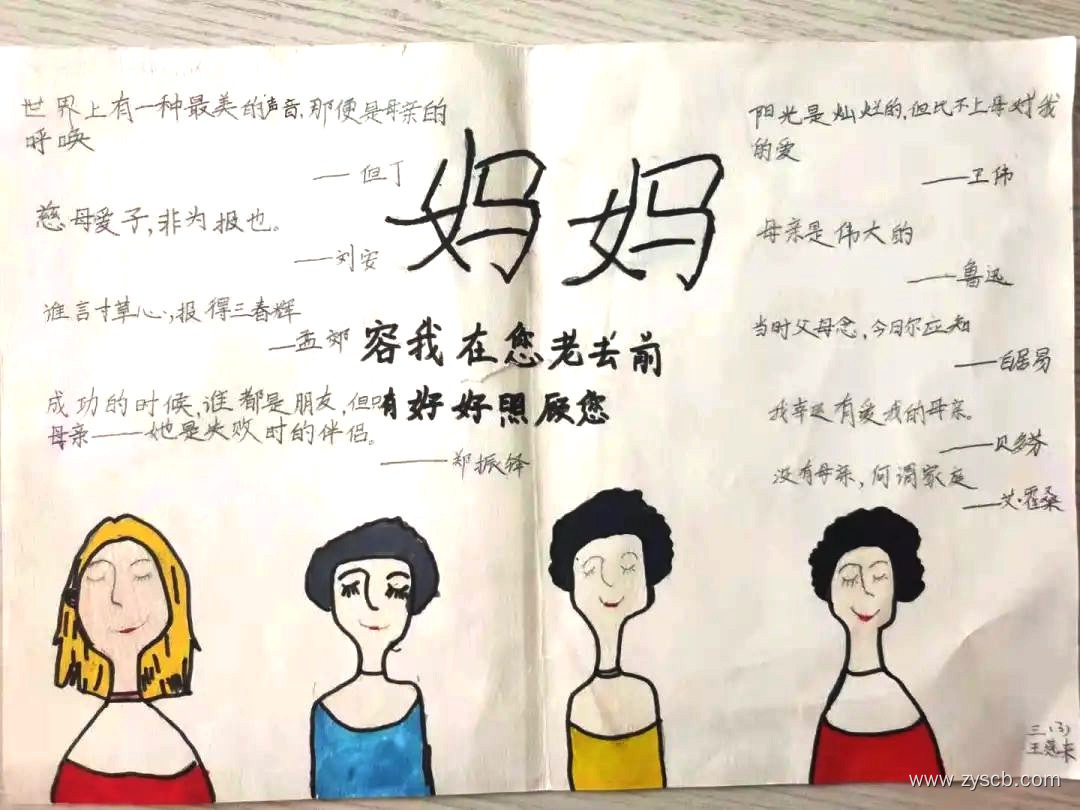 世界上有一种最美的声音,那便是母亲的
呼唤
——但丁
慈母爱子,非为报也。
——刘安
谁言寸草心,报得三春辉
——孟郊
成功的时候,谁都是朋友,但只有
母亲——她是失败时的伴侣。
——郑振铎
妈妈
容我在您老去前
有好好照顾您
阳光是灿烂的,但比不上母对我
的爱
——卫伟
母亲是伟大的
——鲁迅
当时父母念,今日尔应知
——白居易
我幸运有爱我的母亲。
——贝多芬
没有母亲,何谓家庭
——艾·霍桑
三(3)
www.zyscb.com